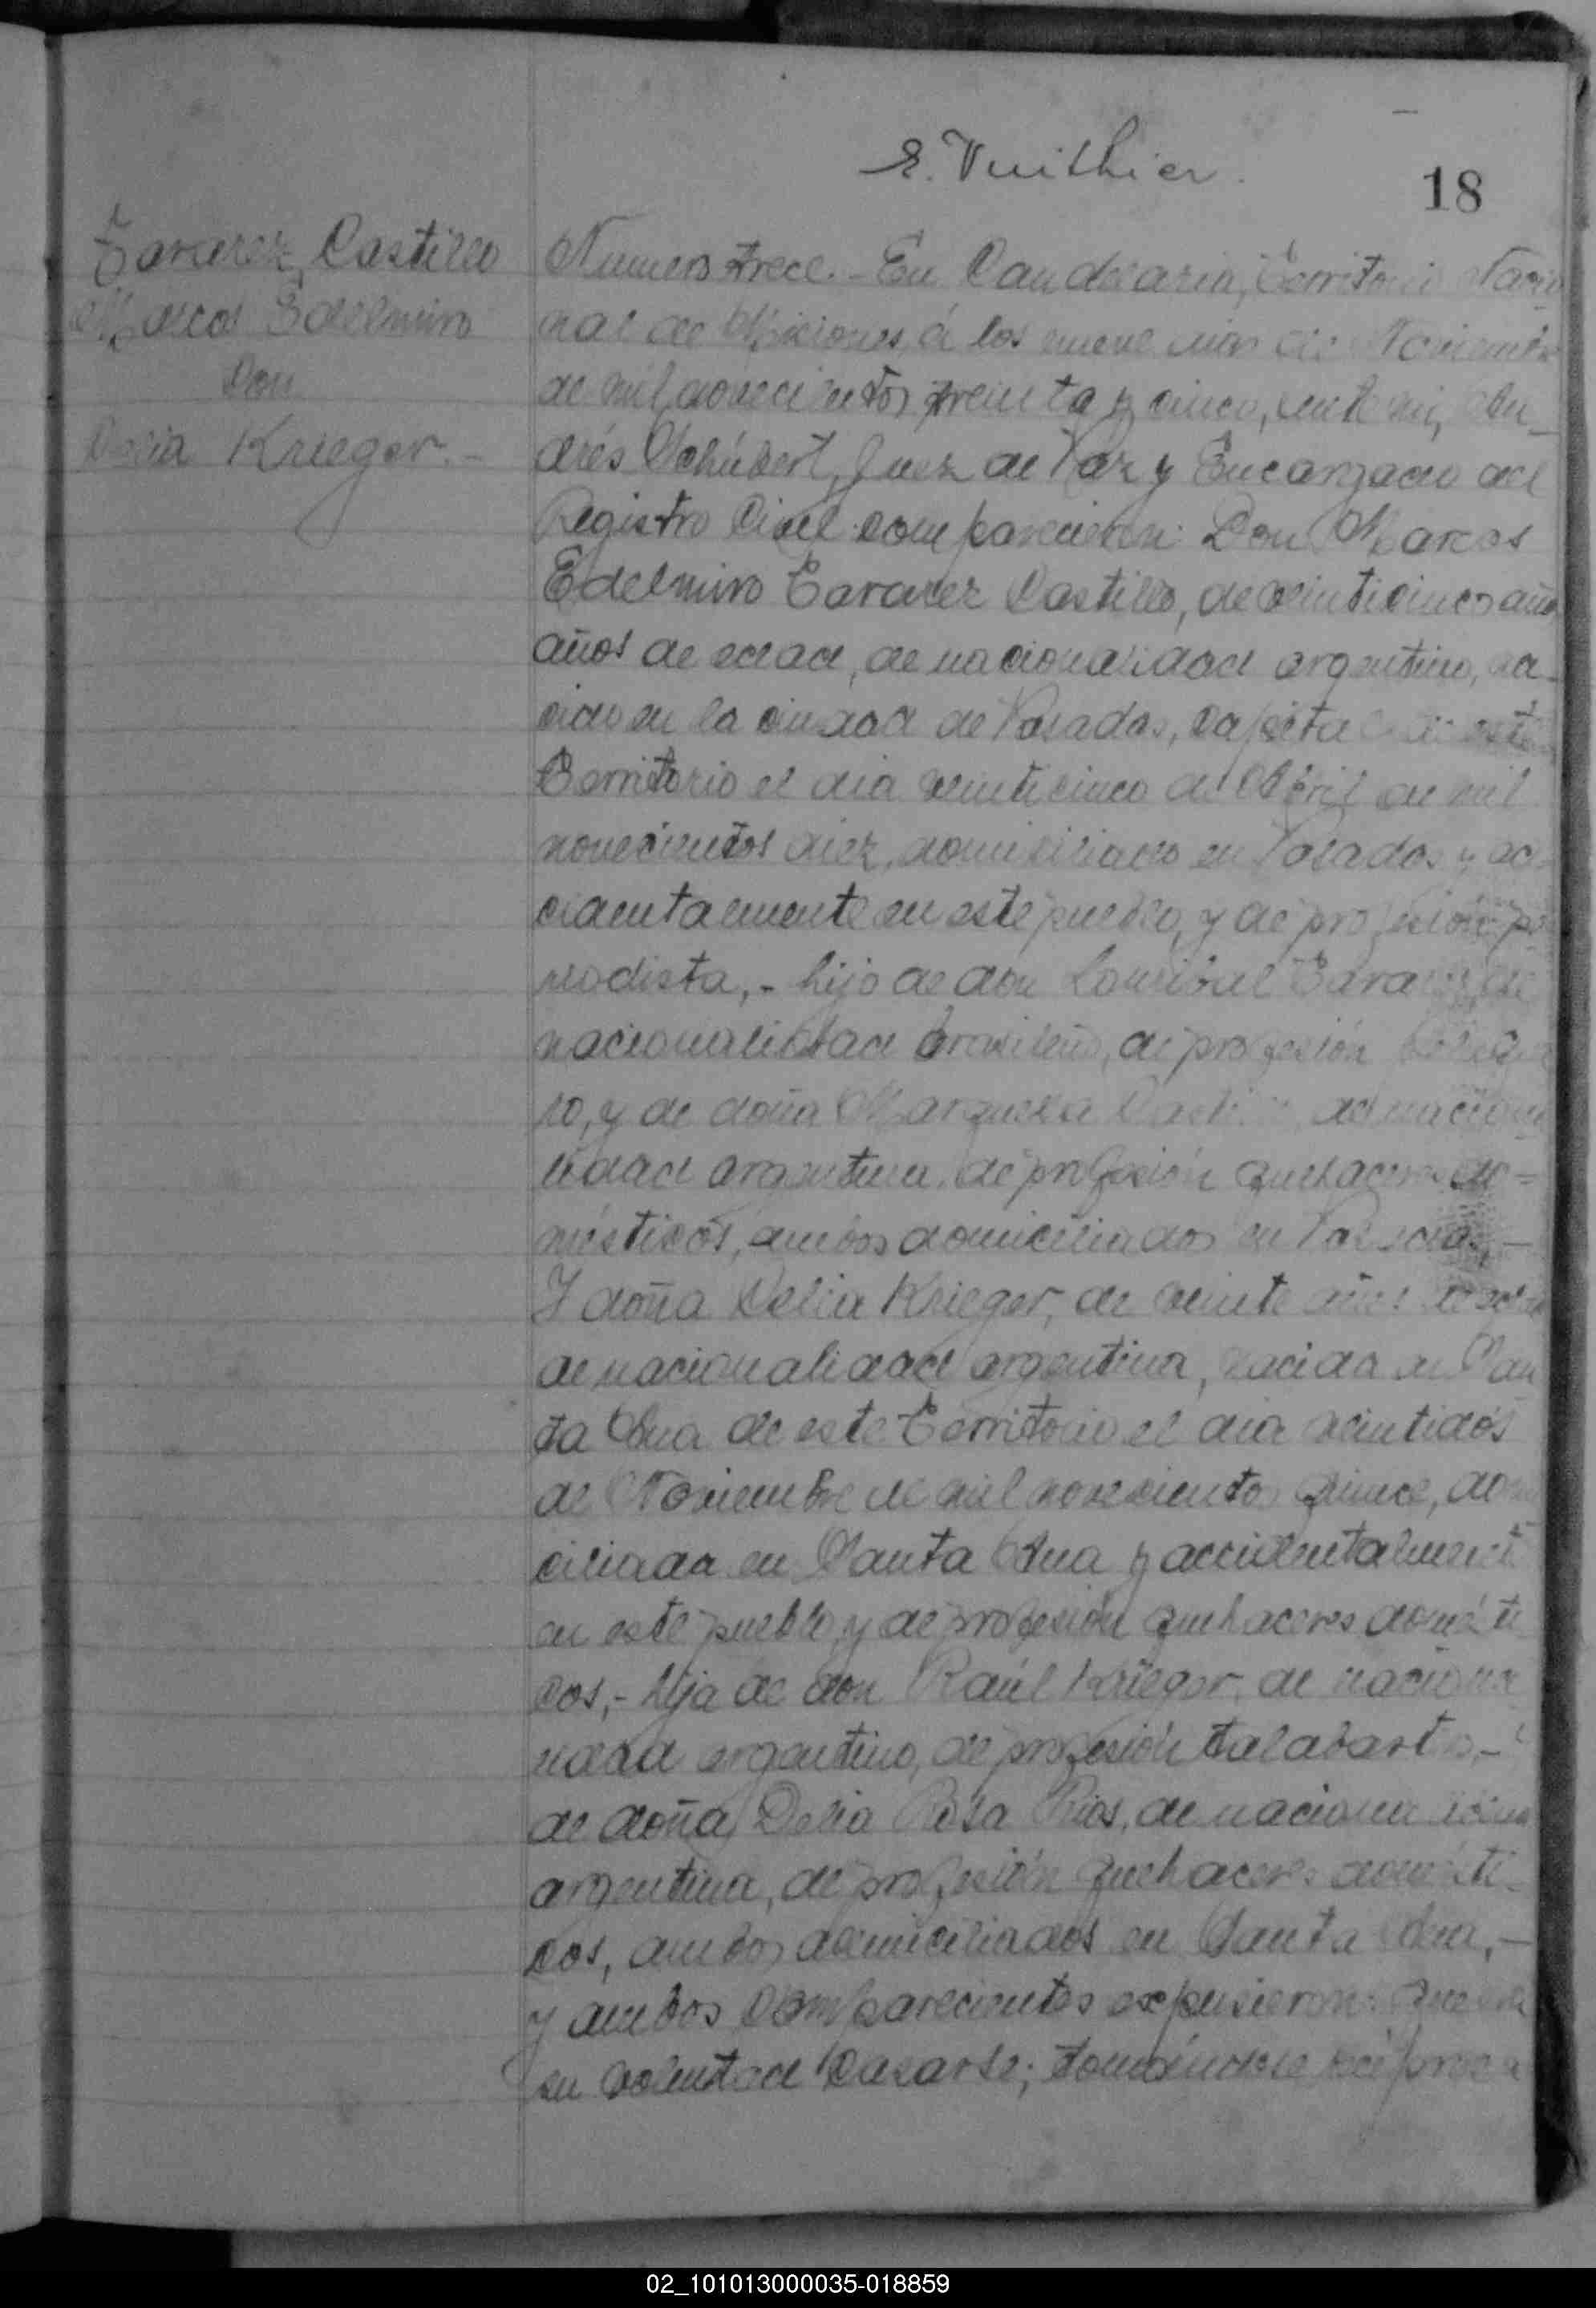 E. Vuithier.
18
Tavarez Castillo
Marcos Edelmiro
Con
Delia Krieger.-
Numero trece.- En Candelaria, Territorio Nacio
nal de Misiones, á los nueve dias de Noviembre
de mil novecientos treinta y cinco, ante mi, An_
drés Schúbert, Juez de Paz y Encargado del
Registro Civil comparecieron: Don Marcos
Edelmiro Tavarez Castillo, de veinticinco años
años de edad, de nacionalidad argentino, na_
cido en la ciudad de Posadas, capital de este
Territorio el dia veinticinco de Abril de mil
novecientos diez, domiciliado en Posadas y ac
cidentalmente en este pueblo, y de profesión pe
riodista,- hijo de don Lourival Tavarez, de
nacionalidad brasileño, de profesión
ro, y de doña Marquesa Castillo, de naciona
lidad argentina, de profesión quehaceres do=
mésticos, ambos domiciliados en Posadas,-
Y doña Delia Krieger, de veinte años de edad
de nacionalidad argentina, nacida en San
ta Ana de este Territorio el dia veintidós
de Noviembre de mil novecientos quince, domi
ciliada en Santa Ana y accidentalment
en este pueblo, y de profesión quehaceres domésti
cos,- hija de don Raúl Krieger, de naciona
lidad argentino, de profesión talabartero,-
de doña Delia Rosa Rios, de nacionalidad
argentina, de profesión quehaceres domésti_
cos, ambos domiciliados en Santa Ana,-
y ambos comparecientes expusieron: que era
su voluntad casarse; tomándose reciproca
02_101013000035-018859